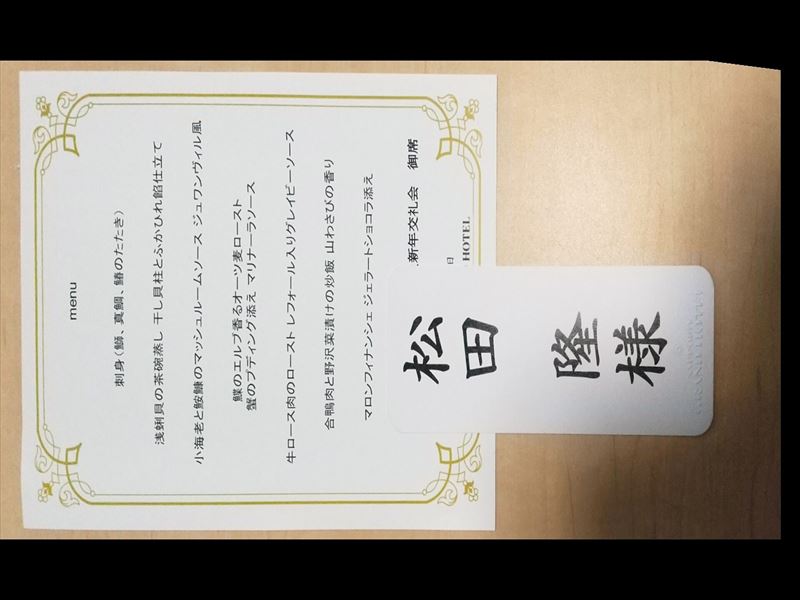 menu
刺身（鰤、真鯛、鰆のたたき）
浅蜊貝の茶碗蒸し 干し貝柱とふかひれ餡仕立て
小海老と鮟鱇のマッシュルームソース ジュワンヴィル風
鰈のエルブ香るオーツ麦ロースト
蟹のプディング添え マリナーラソース
牛ロース肉のロースト レフォール入りグレイビーソース
合鴨肉と野沢菜漬けの炒飯 山わさびの香り
マロンフィナンシェ ジェラートショコラ添え
新年交礼会 御席
日
HOTEL
松田 隆様